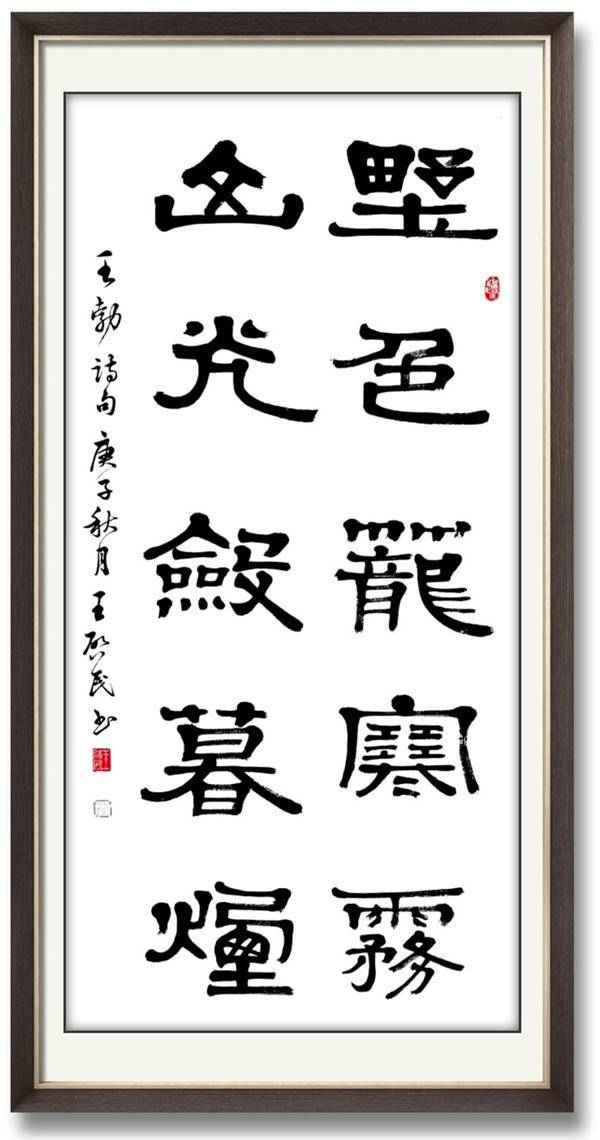 野色籠寒霧
山光斂暮煙
王勃诗句庚子秋月王启民书